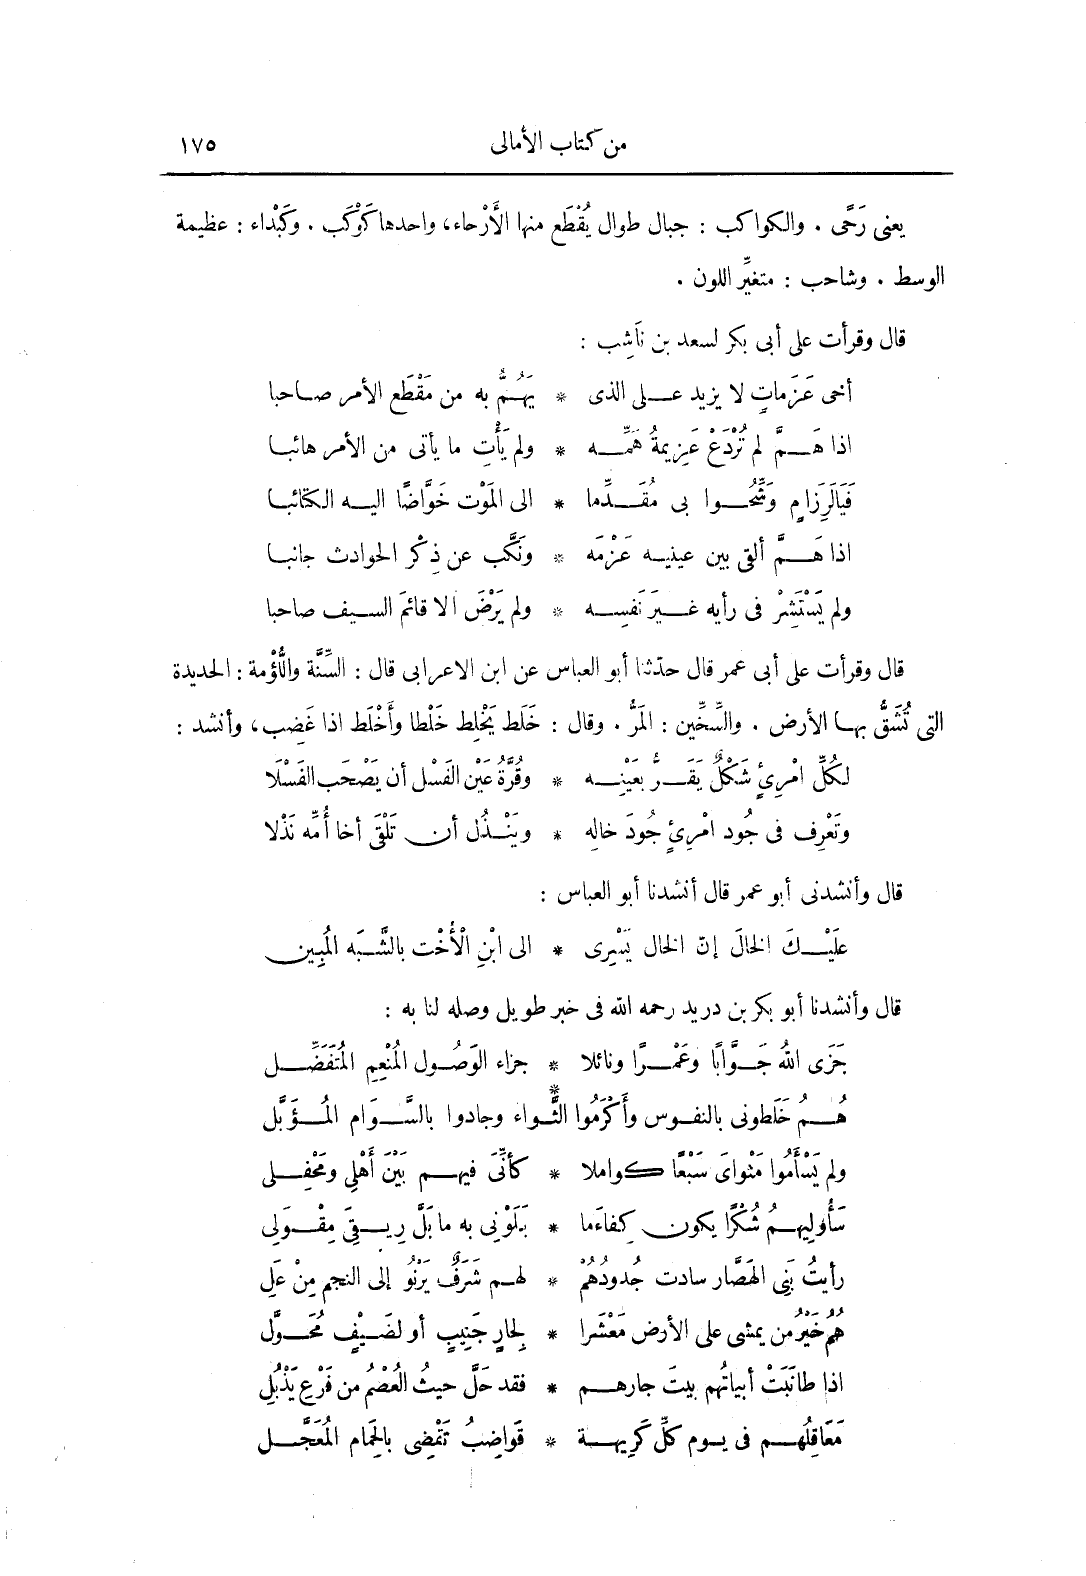 من كتاب الأمالى ١٧٥
يعنى رَحًى . والكواكب : جبال طوال يُقْطَع منها الأَرْحاء، واحدها كَوْكَب . وكَبْداء : عظيمة
الوسط . وشاحب : متغيِّر اللون .
قال وقرأت على أبى بكر لسعد بن ناَشِب :
أخى عَزَماتٍ لا يزيد على الذى * يَهُمُّ به من مَقْطَع الأمر صاحبا
اذا هَمَّ لم تُرْدَعْ عَزِيمةُ هَمِّه * ولم يَأْتِ ما يأتى من الأمر هائبا
فَيَالَرِزَامٍ وَشِّحُوا بى مُقَدِّما * الى المَوْت خَوَّاضًا اليه الكتائبا
اذا هَمَّ ألقى بين عينيه عَزْمَه * ونَكَّب عن ذِكْر الحوادث جانبا
ولم يَسْتَشِرْ فى رأيه غيرَ نَفسِه * ولم يَرْضَ الا قائمَ السيف صاحبا
قال وقرأت على أبى عمر قال حدّثنا أبو العباس عن ابن الاعرابى قال : السِّنَّة واللُّؤْمة : الحديدة
التى تُشَقُّ بها الأرض . والسِّخِّين : المَرُّ . وقال : خَلَط يَخْلِط خَلْطا وأَخْلَط اذا غَضِب، وأنشد :
لكُلِّ امْرِئٍ شَكْلٌ يَقَرُّ بعَيْنِه * وقُرَّةُ عَيْن الفَسْل أن يَصْحَب الفَسْلَا
وتَعْرِف فى جُود امْرِئٍ جُودَ خالِه * ويَنْذُل أن تَلْقَى أخا أُمِّه نَذْلا
قال وأنشدنى أبو عمر قال أنشدنا أبو العباس :
عَلَيْكَ الخالَ إنّ الخال يَسْرِى * الى ابْنِ الْأُخْت بالشَّبَه المُبِين
قال وأنشدنا أبو بكر بن دريد رحمه الله فى خبر طويل وصله لنا به :
جَزَى اللهُ جَوَّابًا وعَمْرًا ونائلا * جزاء الوَصُول المُنْعِم المُتَفَضِّل
هُمُ خَلَطونى بالنفوس وأَكْرَمُوا الثَّواء * وجادوا بالسَّوَام المُؤَبَّل
ولم يَسْأَمُوا مَثْواىَ سَبْعًا كواملا * كأنِّىَ فيهم بَيْنَ أَهْلِى ومَحْفِلى
سَأُولِيهمُ شُكْرًا يكون كِفاءَما * بَلَوْنِى به ما بَلَّ رِيقِىَ مِقْوَلى
رأيتُ بَنِى الهَصَّار سادت جُدودُهُمْ * لهم شَرَفٌ يَرْنُو إلى النجم مِنْ عَلِ
هُمُ خَيْرُ من يمشى على الأرض مَعْشَرا * لِجارٍ جَنِيبٍ أو لضَيْفٍ مُحَوَّل
اذا طانَبَتْ أبياتُهم بيتَ جارهم * فقد حَلَّ حيثُ العُصْمُ من فَرْعِ يَذْبُلِ
مَعَاقِلُهم فى يوم كلِّ كَرِيهة * قَواضِبُ تَمْضِى بالحِمام المُعَجَّل